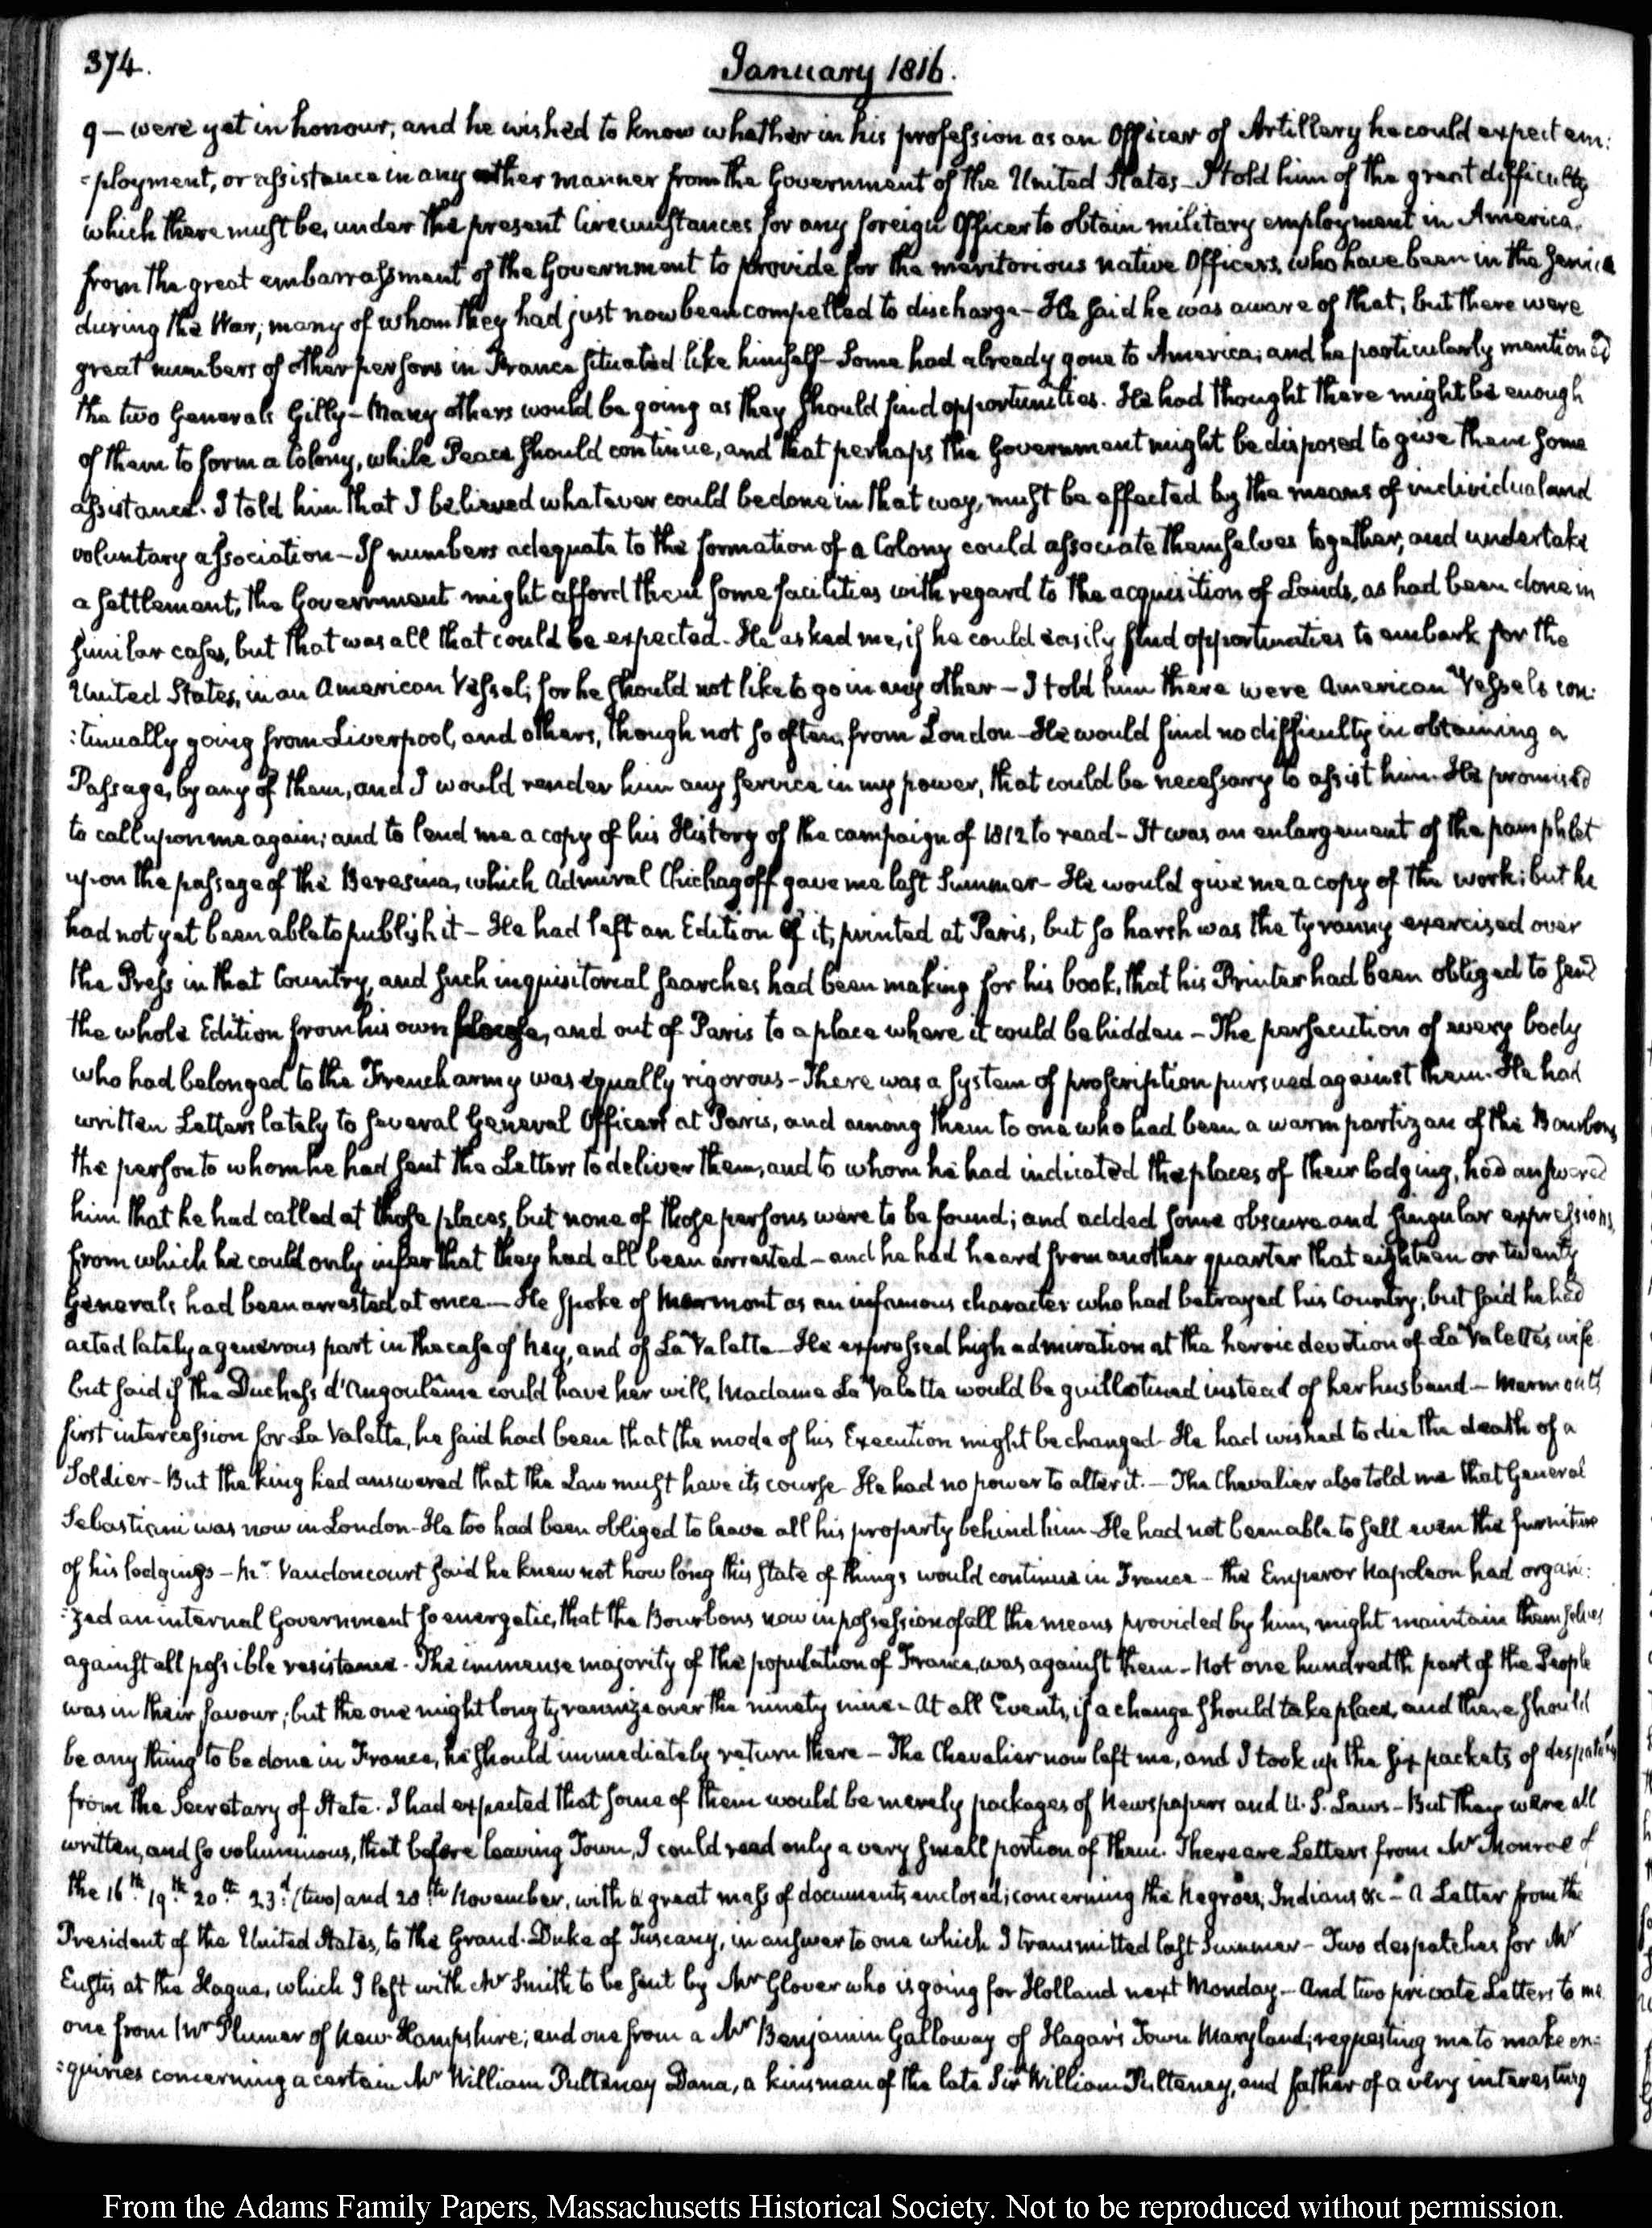 374.
January 1816.
9 — were yet in honour, and he wished to know whether in his profession as an Officer of Artillery he could expect em:
:ployment, or assistance in any other manner from the Government of the United States — I told him of the great difficulty
which there must be, under the present Circumstances for any foreign Officer to obtain military employment in America,
from the great embarrassment of the Government to provide for the meritorious native Officers, who have been in the service
during the War; many of whom they had just now been compelled to discharge — He said he was aware of that; but there were
great numbers of other persons in France situated like himself — Some had already gone to America; and he particularly mentioned
the two Generals Gilly — Many others would be going as they should find opportunities. He had thought there might be enough
of them to form a Colony, while Peace should continue, and that perhaps the Government might be disposed to give them some
assistance. I told him that I believed whatever could be done in that way, must be effected by the means of individual and
voluntary association — If numbers adequate to the formation of a Colony could associate themselves together, and undertake
a settlement, the Government might afford them some facilities with regard to the acquisition of Lands, as had been done in
similar cases, but that was all that could be expected. He asked me, if he could easily find opportunities to embark for the
United States, in an American Vessel; for he should not like to go in any other — I told him there were American Vessels con:
:tinually going from Liverpool, and others, though not so often, from London — He would find no difficulty in obtaining a
Passage, by any of them, and I would render him any service in my power, that could be necessary to assist him. He promised
to call upon me again; and to lend me a copy of his History of the campaign of 1812 to read — It was an enlargement of the pamphlet
upon the passage of the Beresina, which Admiral Chichagoff gave me last Summer — He would give me a copy of the work; but he
had not yet been able to publish it — He had left an Edition of it, printed at Paris, but so harsh was the tyranny exercised over
the Press in that Country, and such inquisitorial searches had been making for his book, that his Printer had been obliged to send
the whole Edition from his own house, and out of Paris to a place where it could be hidden — The persecution of every body
who had belonged to the French army was equally rigorous — There was a system of proscription pursued against them. He had
written Letters lately to several General Officers at Paris, and among them to one who had been a warm partizan of the Bourbons,
the person to whom he had sent the Letters to deliver them, and to whom he had indicated the places of their lodging, had answered
him that he had called at those places, but none of those persons were to be found; and added some obscure and singular expressions,
from which he could only infer that they had all been arrested — and he had heard from another quarter that eighteen or twenty
Generals had been arrested at once — He spoke of Marmont as an infamous character who had betrayed his Country; but said he had
acted lately a generous part in the case of Ney, and of La Valette — He expressed high admiration at the heroic devotion of La Valette's wife
but said if the Duchess d'Angoulême could have her will, Madame La Valette would be guillotined instead of her husband — Marmont's
first intercession for La Valette, he said had been that the mode of his Execution might be changed — He had wished to die the death of a
Soldier — But the king had answered that the Law must have its course — He had no power to alter it. — The Chevalier also told me that General
Sebastiani was now in London — He too had been obliged to leave all his property behind him — He had not been able to sell even the furniture
of his lodgings — Mr. Vaudoncourt said he knew not how long this state of things would continue in France — the Emperor Napoleon had organi:
:zed an internal Government so energetic, that the Bourbons now in possession of all the means provided by him, might maintain themselves
against all possible resistance. The immense majority of the population of France, was against them — Not one hundredth part of the People
was in their favour; but the one might long tyrannize over the ninety nine — At all Events, if a change should take place, and there should
be any thing to be done in France, he should immediately return there — The Chevalier now left me, and I took up the six packets of despatches
from the Secretary of State. I had expected that some of them would be merely packages of Newspapers and U.S. Laws — But they were all
written, and so voluminous, that before leaving Town, I could read only a very small portion of them. There are Letters from Mr Monroe of
the 16th. 19th. 20th. 23d. (two) and 20th. November, with a great mass of documents enclosed; concerning the Negroes, Indians &c — A Letter from the
President of the United States, to the Grand-Duke of Tuscany, in answer to one which I transmitted last Summer — Two despatches for Mr
Eustis at the Hague, which I left with Mr Smith to be sent by Mr Glover who is going for Holland next Monday — And two private Letters to me
one from Mr Plumer of New-Hampshire; and one from a Mr Benjamin Galloway of Hagar's Town Maryland; requesting me to make en:
:quiries concerning a certain Mr William Pulteney Dana, a kinsman of the late Sir William Pulteney, and father of a very interesting
From the Adams Family Papers, Massachusetts Historical Society. Not to be reproduced without permission.